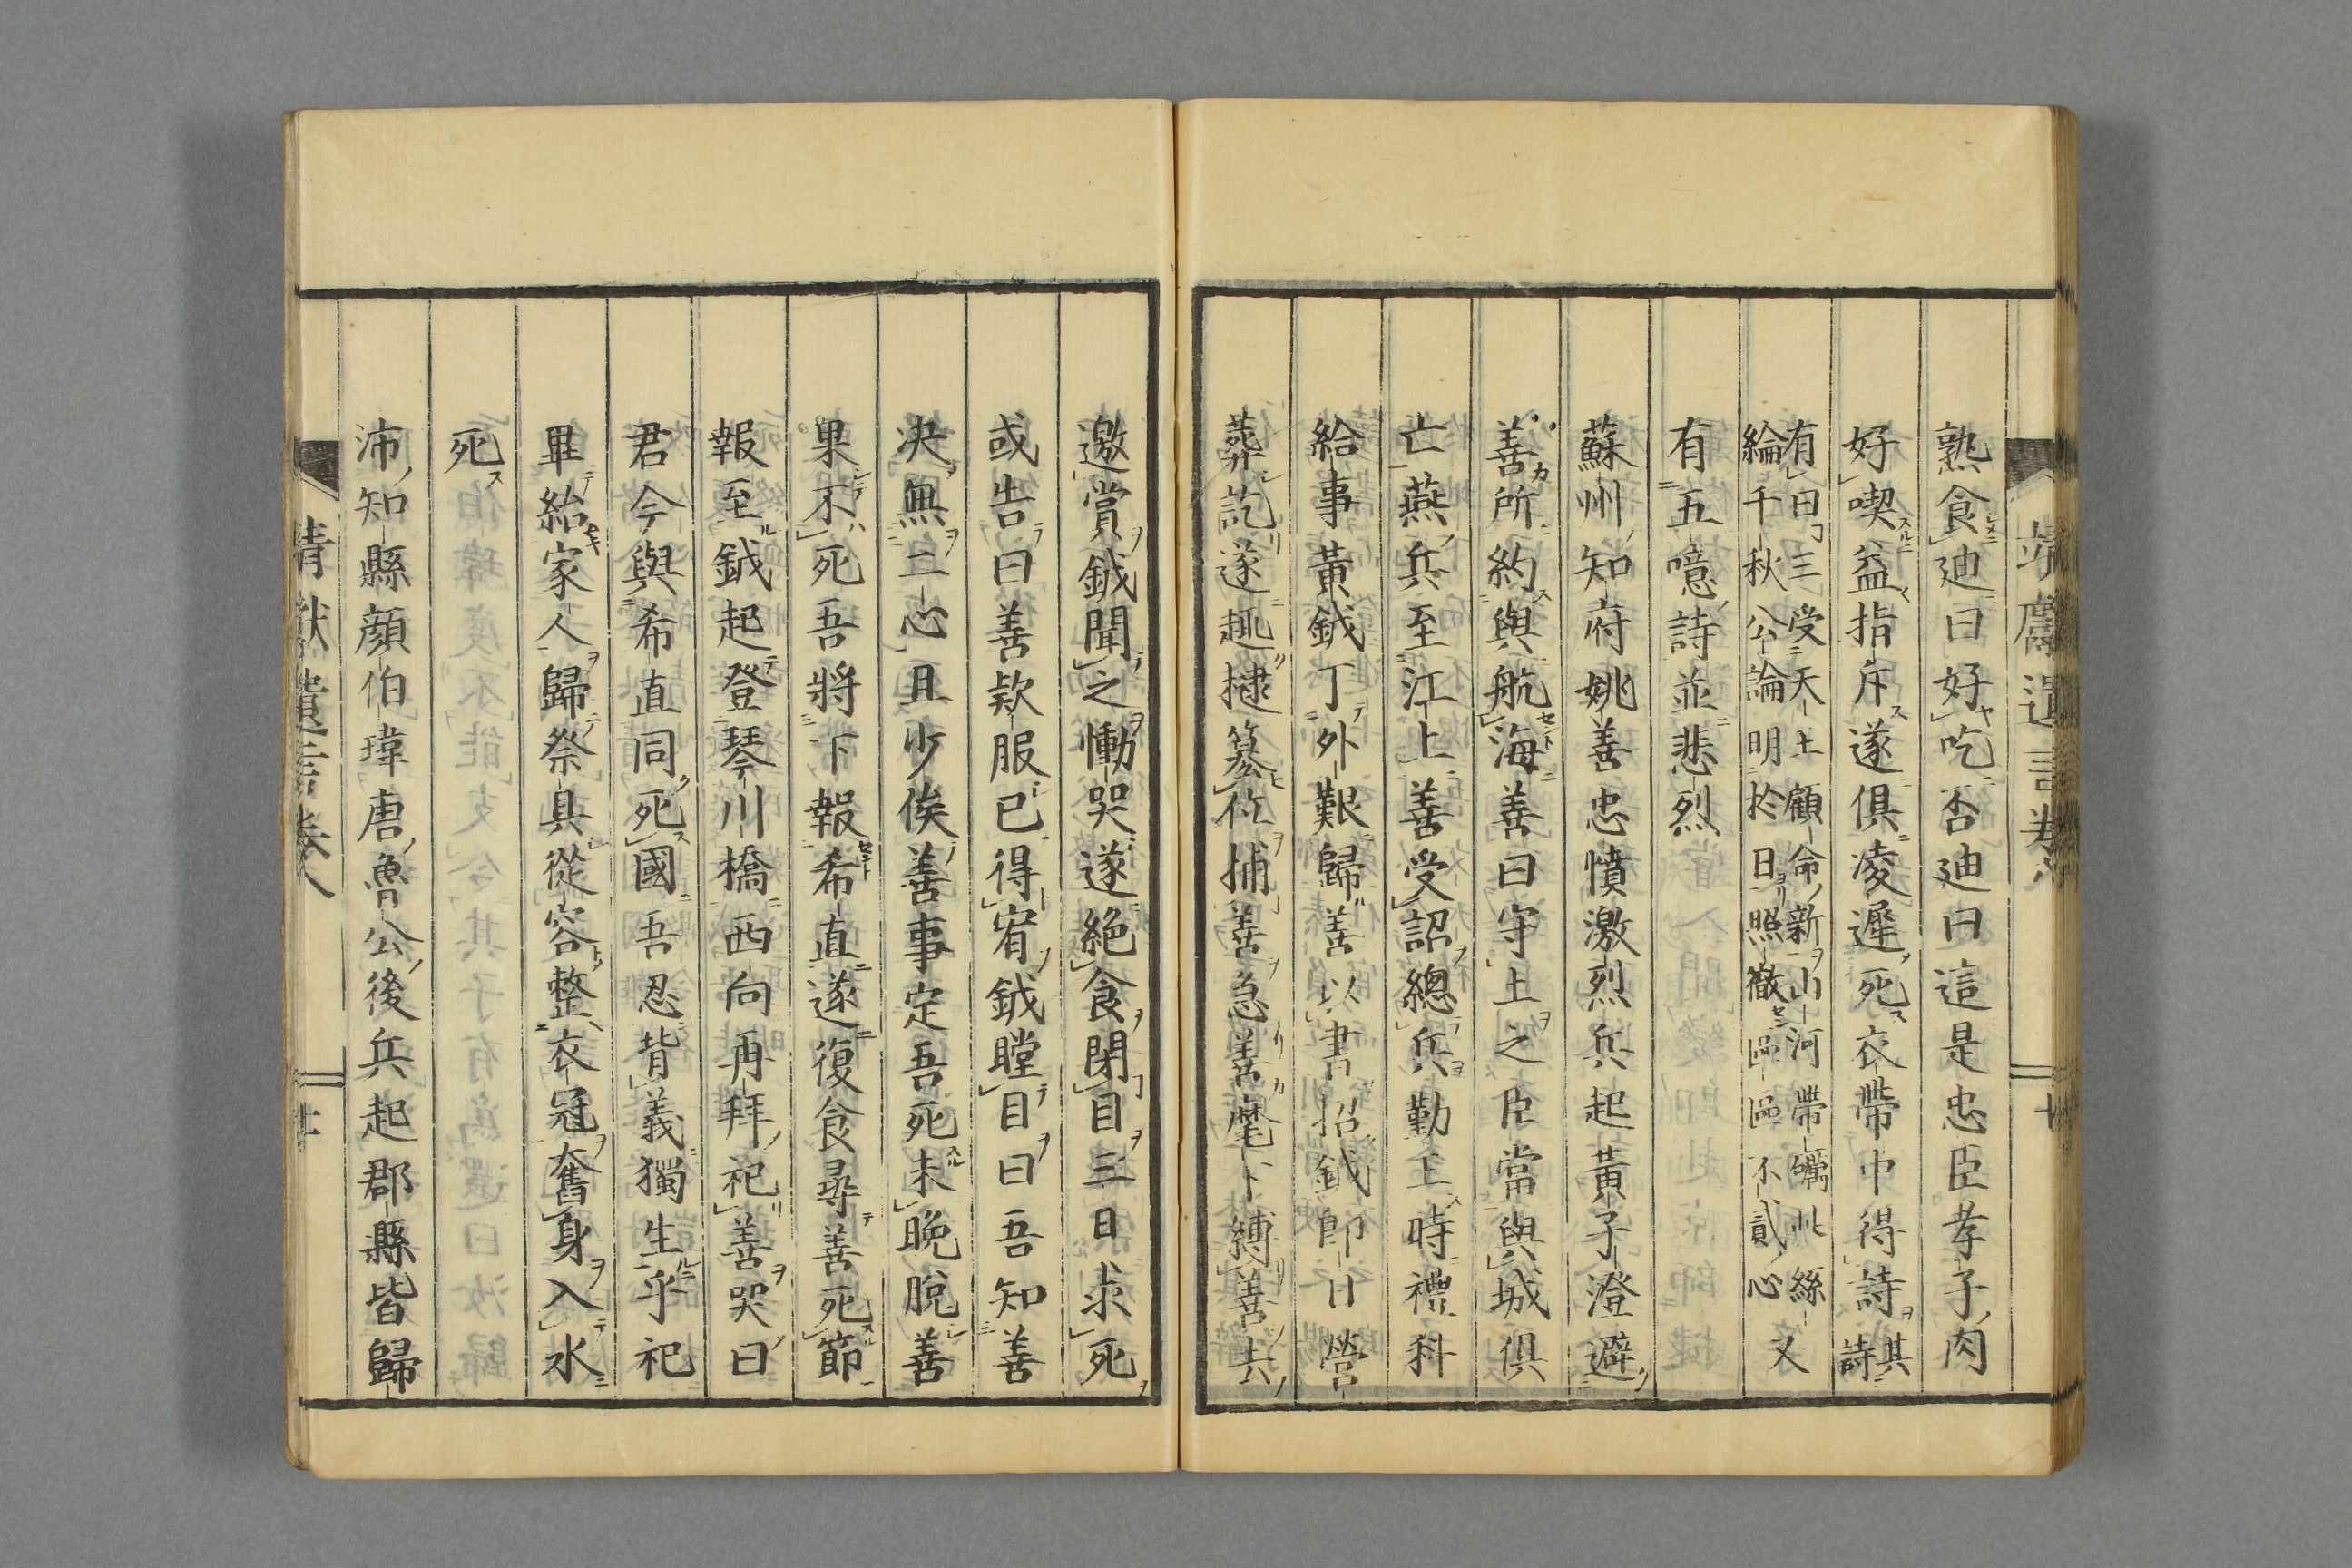 靖獻遺言卷八
熟食迪曰好吃否迪曰這是忠臣孝子肉
好喫益指斥遂俱凌遲死衣帶中得詩其詩
有曰三受天王顧命新山河帶礪此絲
綸千秋公論明於日照徹區區不貳心又
有五噫詩並悲烈
蘇州知府姚善忠憤激烈兵起黃子澄避
善所約與航海善曰守土之臣當與城俱
亡燕兵至江上善受詔總兵勤王時禮科
給事黃鉞丁外艱歸善以書招鉞即日營
葬訖遂趣捷篡位捕善急善麾下縛善去
邀賞鉞聞之慟哭遂絕食閉目三日求死
或告曰善款服已得宥鉞瞠目曰吾知善
决無二心且少俟善事定吾死未晚脫善
果不死吾將下報希直遂復食尋善死節
報至鉞起登琴川橋西向再拜祀善哭曰
君今與希直同死國吾忍背義獨生乎祀
畢紿家人歸祭具從容整衣冠奮身入水
死
沛知縣顔伯瑋唐魯公後兵起郡縣皆歸
靖獻遺言卷八